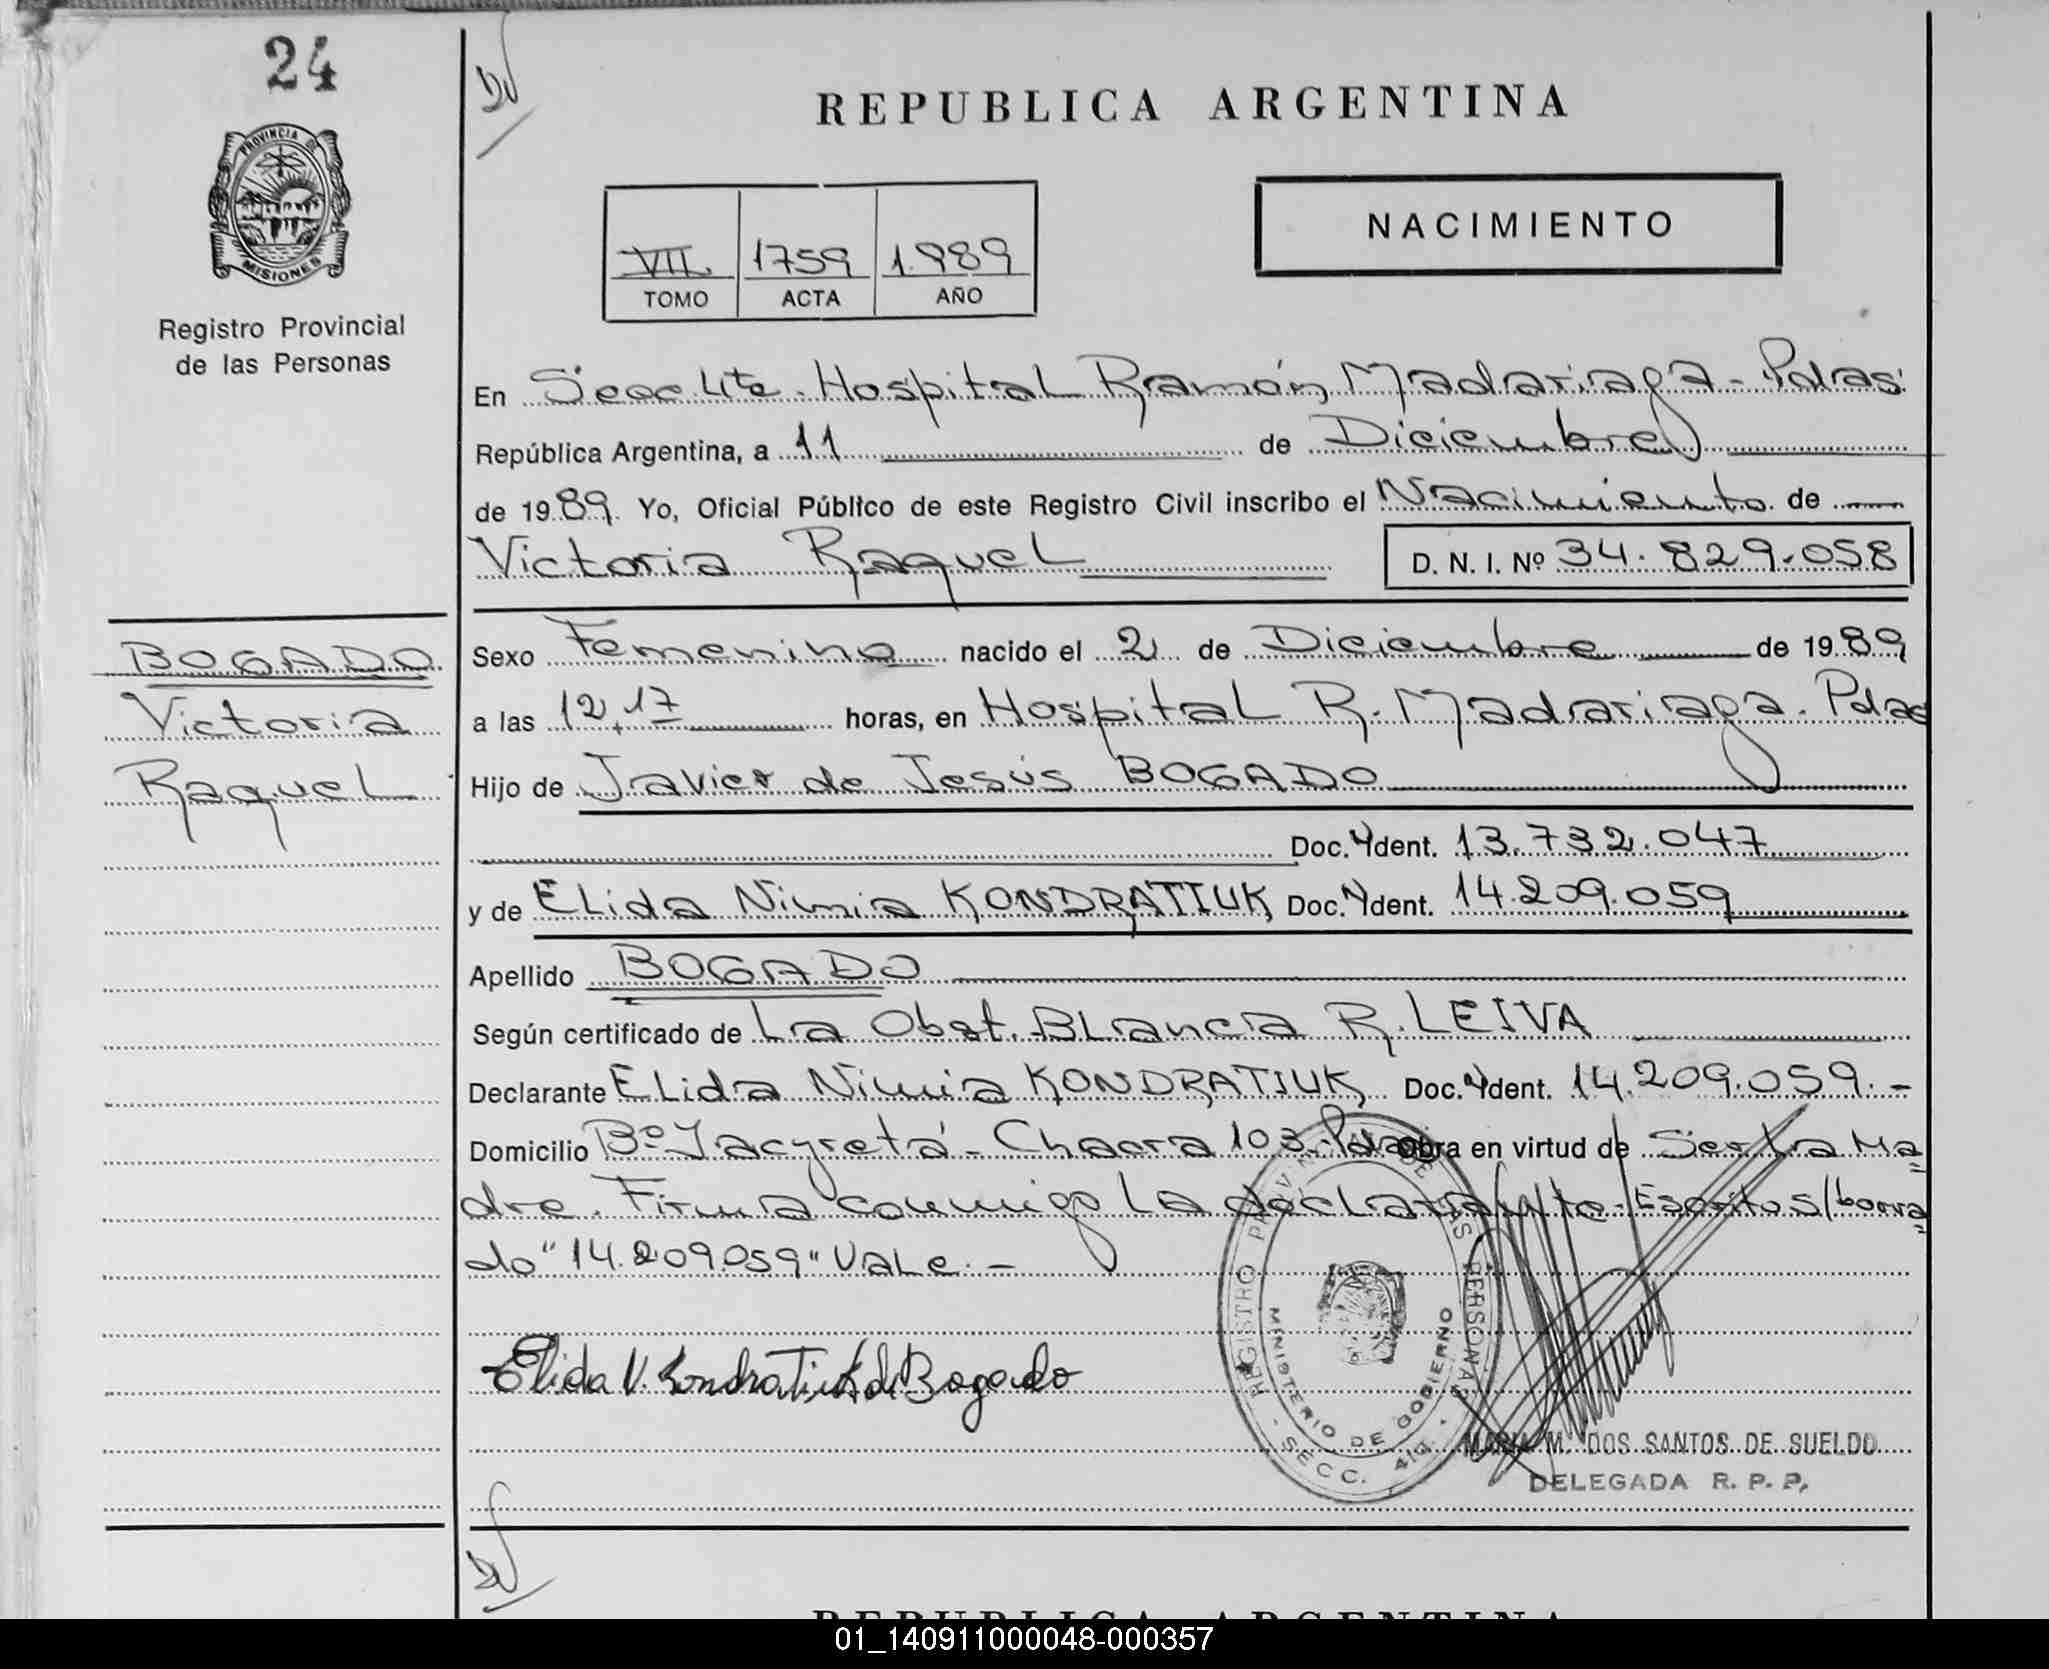 24
PROVINCIA DE
MISIONES
Registro Provincial
de las Personas
REPUBLICA ARGENTINA
NACIMIENTO
VII. 1759 1.989
TOMO ACTA AÑO
En Secc 4ta. Hospital Ramón Madariaga - Pdas.
República Argentina, a 11 de Diciembre
de 1989. Yo, Oficial Público de este Registro Civil inscribo el Nacimiento de
Victoria Raquel D. N. I. Nº 34.829.058
BOGADO
Victoria
Raquel
Sexo Femenino nacido el 2 de Diciembre de 1989
a las 12,17 horas, en Hospital R. Madariaga. Pdas
Hijo de Javier de Jesús BOGADO
Doc. Ydent. 13.732.047
y de Elida Nimia KONDRATIUK Doc. Ydent. 14.209.059
Apellido BOGADO
Según certificado de La Obst. Blanca R. LEIVA
Declarante Elida Nimia KONDRATIUK Doc. Ydent. 14.209.059.-
Domicilio Bº Yacyretá - Chacra 103 - Pdas Obra en virtud de Ser la Ma=
dre. Firma conmigo la declarante - Escrito s/borra=
do "14.209.059" Vale. -
Elida N. Kondratiuk de Bogado
REGISTRO PROVINCIAL DE LAS PERSONAS
MINISTERIO DE GOBIERNO
- SECC. 4ta. -
MARIA M. DOS SANTOS DE SUELDO
DELEGADA R. P. P.
REPUBLICA ARGENTINA
01_140911000048-000357